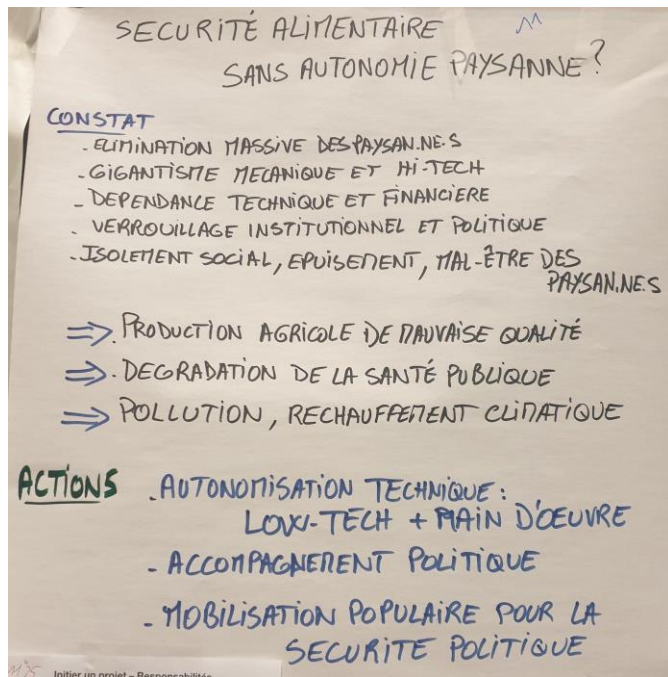 SECURITÉ ALIMENTAIRE
SANS AUTONOMIE PAYSANNE?
CONSTAT
- ELIMINATION MASSIVE DES PAYSAN.NE.S
- GIGANTISME MECANIQUE ET HI-TECH
- DEPENDANCE TECHNIQUE ET FINANCIÈRE
- VERROUILLAGE INSTITUTIONNEL ET POLITIQUE
- ISOLEMENT SOCIAL, EPUISEMENT, MAL-ÊTRE DES
PAYSAN.NE.S
⇒ PRODUCTION AGRICOLE DE MAUVAISE QUALITÉ
⇒ DEGRADATION DE LA SANTÉ PUBLIQUE
⇒ POLLUTION, RECHAUFFEMENT CLIMATIQUE
ACTIONS
- AUTONOMISATION TECHNIQUE:
LOW-TECH + MAIN D'OEUVRE
- ACCOMPAGNEMENT POLITIQUE
- MOBILISATION POPULAIRE POUR LA
SECURITE POLITIQUE
Initier un projet – Responsabilités